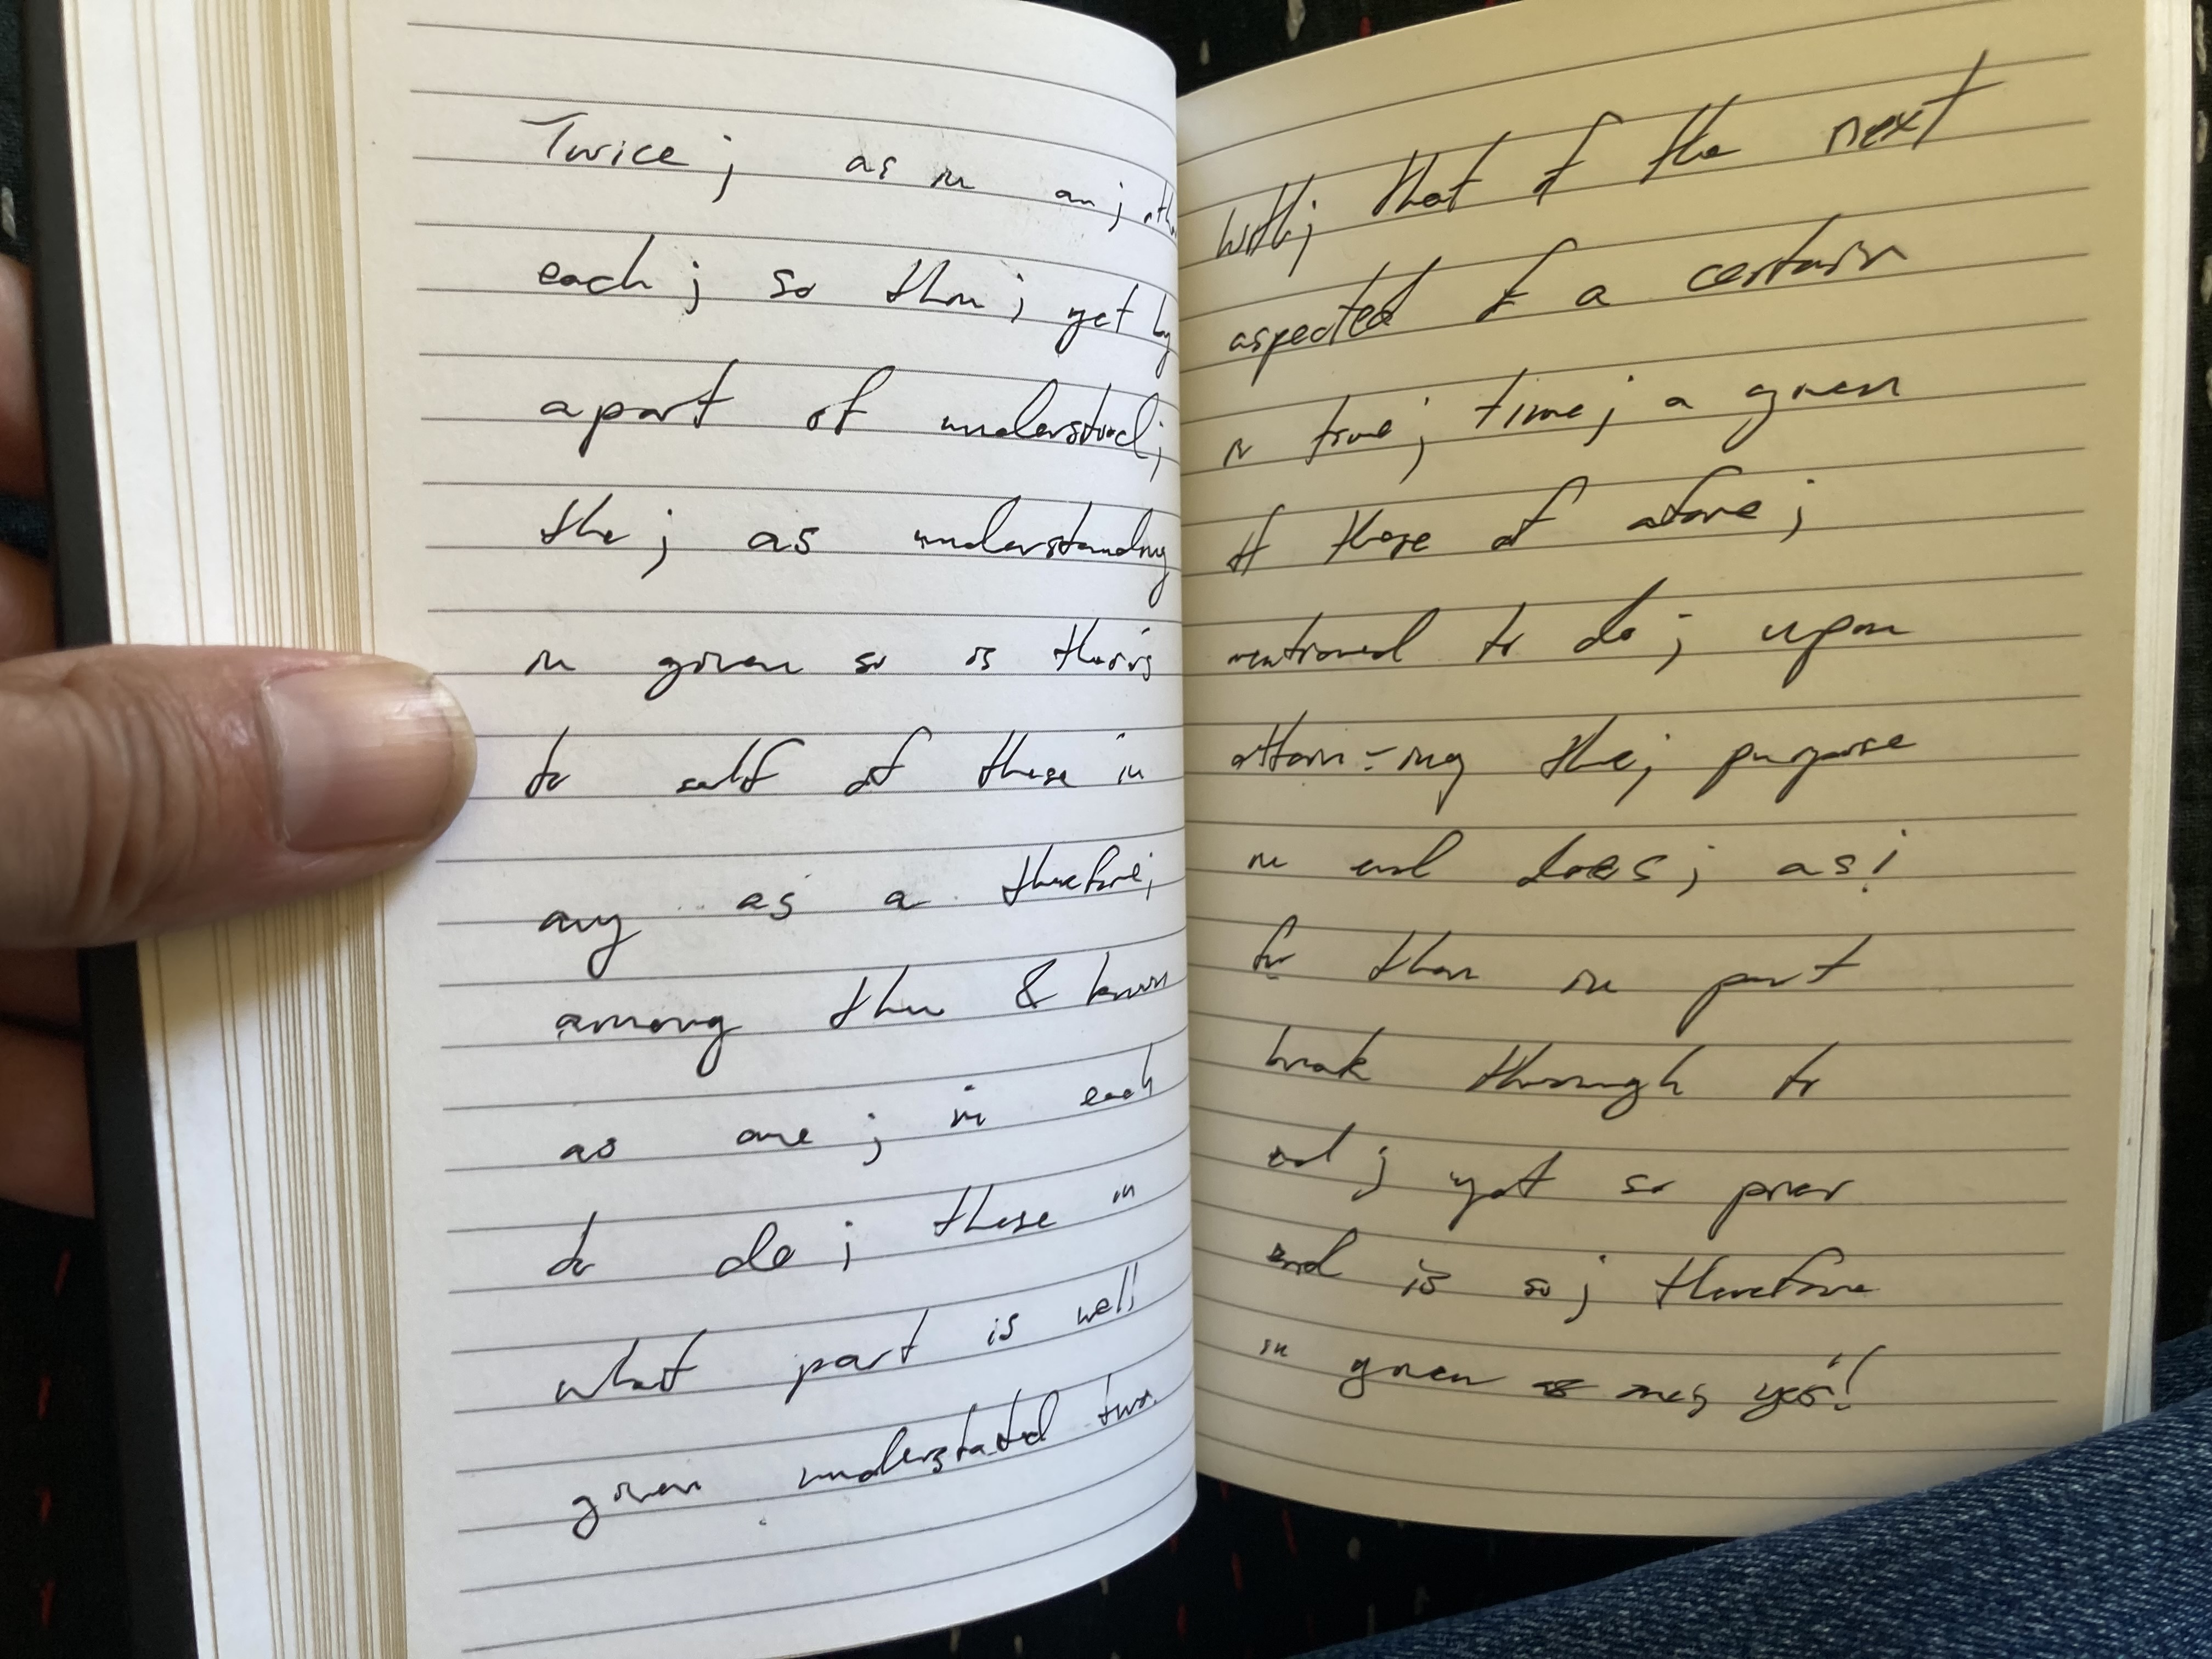 Twice ; as in an ;
each ; so then ; yet by
apart of understood ;
the ; as understanding
in given so is this
to self of these in
any as a therefore ;
among the & known
as one ; in each
to do ; these in
what part is well
given understated two.
with ; that of the next
aspected of a certain
in time ; time ; a given
of those of afore ;
mentioned to do ; upon
attain-ing the ; purpose
in end does ; as !
for then in part
break through to
end ; yet so prior
end is so ; therefore
in given yes !